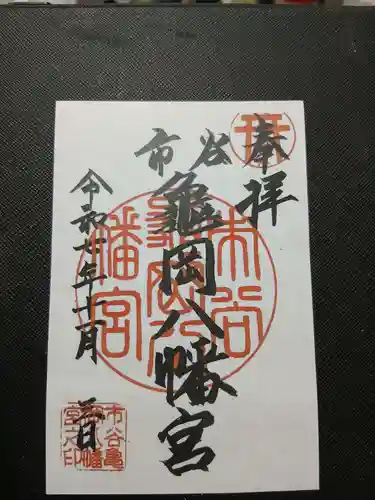 奉拝
市谷
龜岡八幡宮
令和七年十一月
日
市谷
龜岡八
幡宮
市谷亀
岡八幡
宮之印